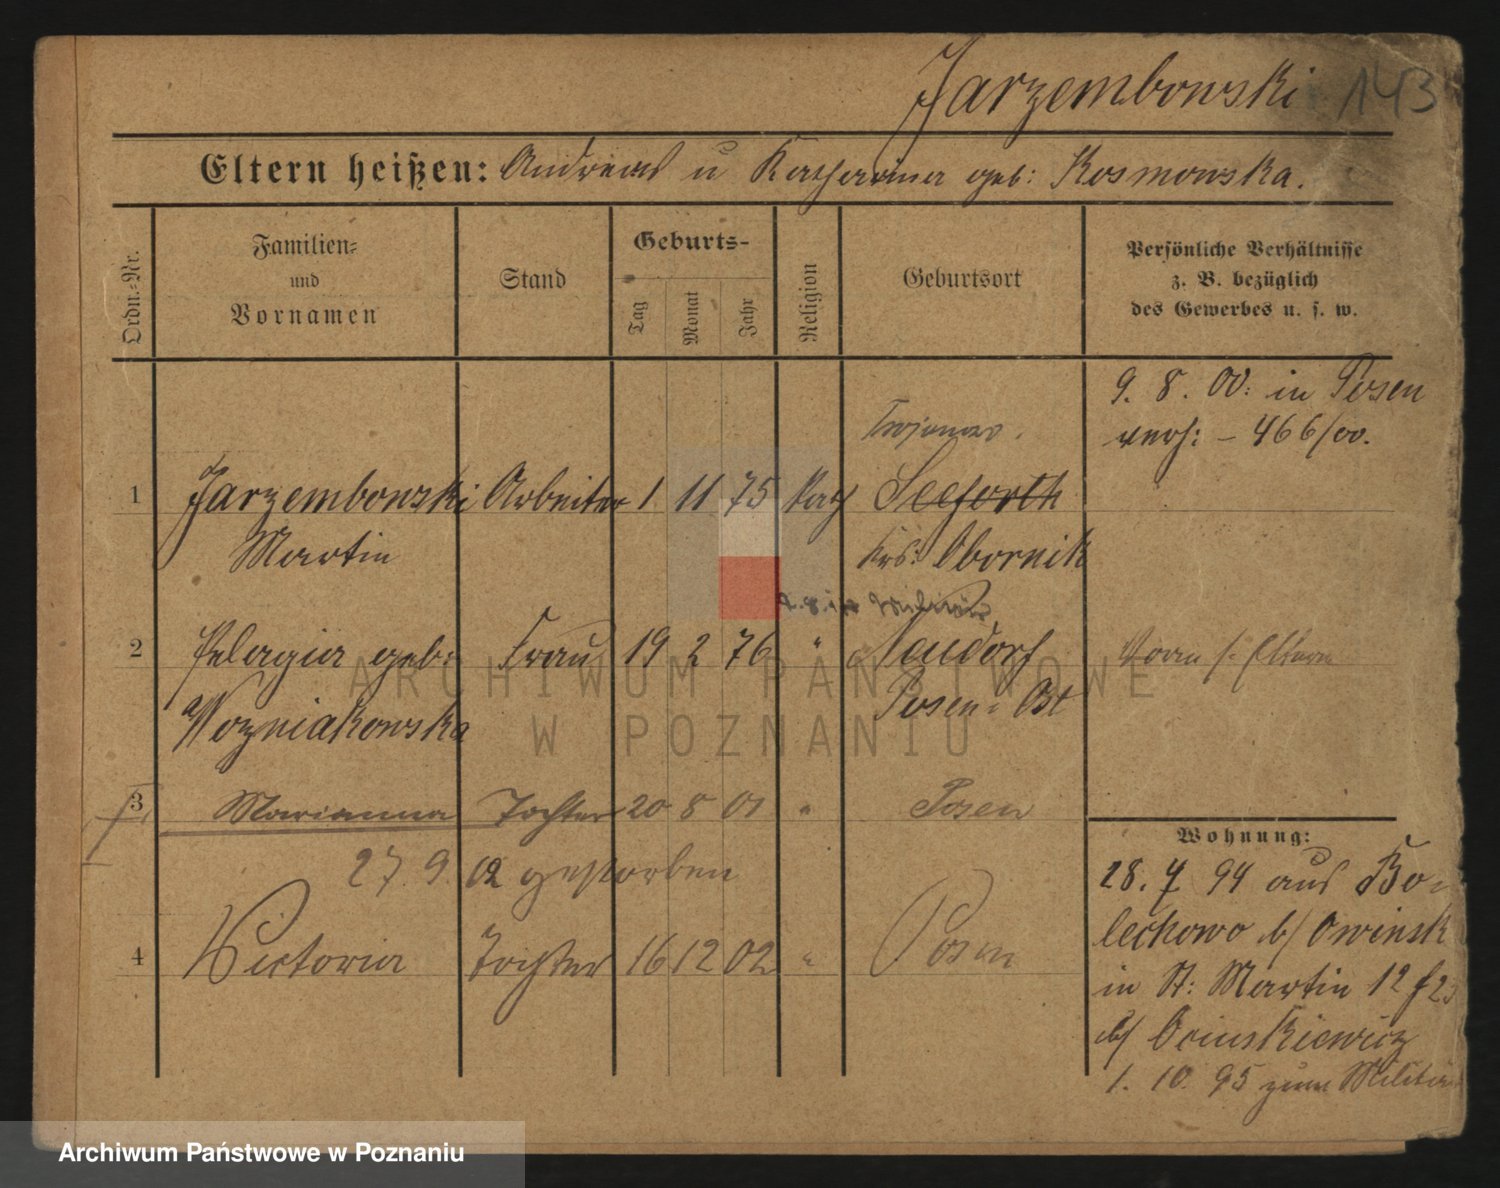 Jarzembowski 143
Eltern heißen: Andreas u Katharina geb: Kosmowska.
Ordn.-Nr.
Familien- und Vornamen
Stand
Geburts-
Tag
Monat
Jahr
Religion
Geburtsort
Persönliche Verhältnisse
z. B. bezüglich
des Gewerbes u. s. w.
9. 8. 00: in Posen
verh: – 466/00.
1 Jarzembowski Arbeiter 1 11 75 Kath Seeforth
Martin Krs: Obornik
2 Pelagia geb: Frau 19 2 76 " Neudorf
Wozniakowska Posen-Ost
3 Marianna Tochter 20 8 01 " Posen
27. 9. 02 gestorben
4 Victoria Tochter 16 12 02 " Posen
Wohnung:
28. 7 94 aus Bo-
lechowo b/ Owinsk
in St: Martin 12
b/
1. 10. 95 zum Militär
ARCHIWUM PAŃSTWOWE
W POZNANIU
Archiwum Państwowe w Poznaniu